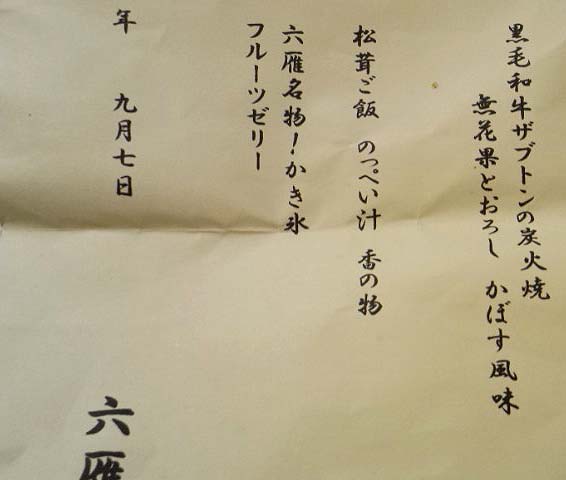 黒毛和牛ザブトンの炭火焼
無花果とおろし かぼす風味
松茸ご飯 のっぺい汁 香の物
六雁名物！かき氷
フルーツゼリー
年 九月七日
六雁